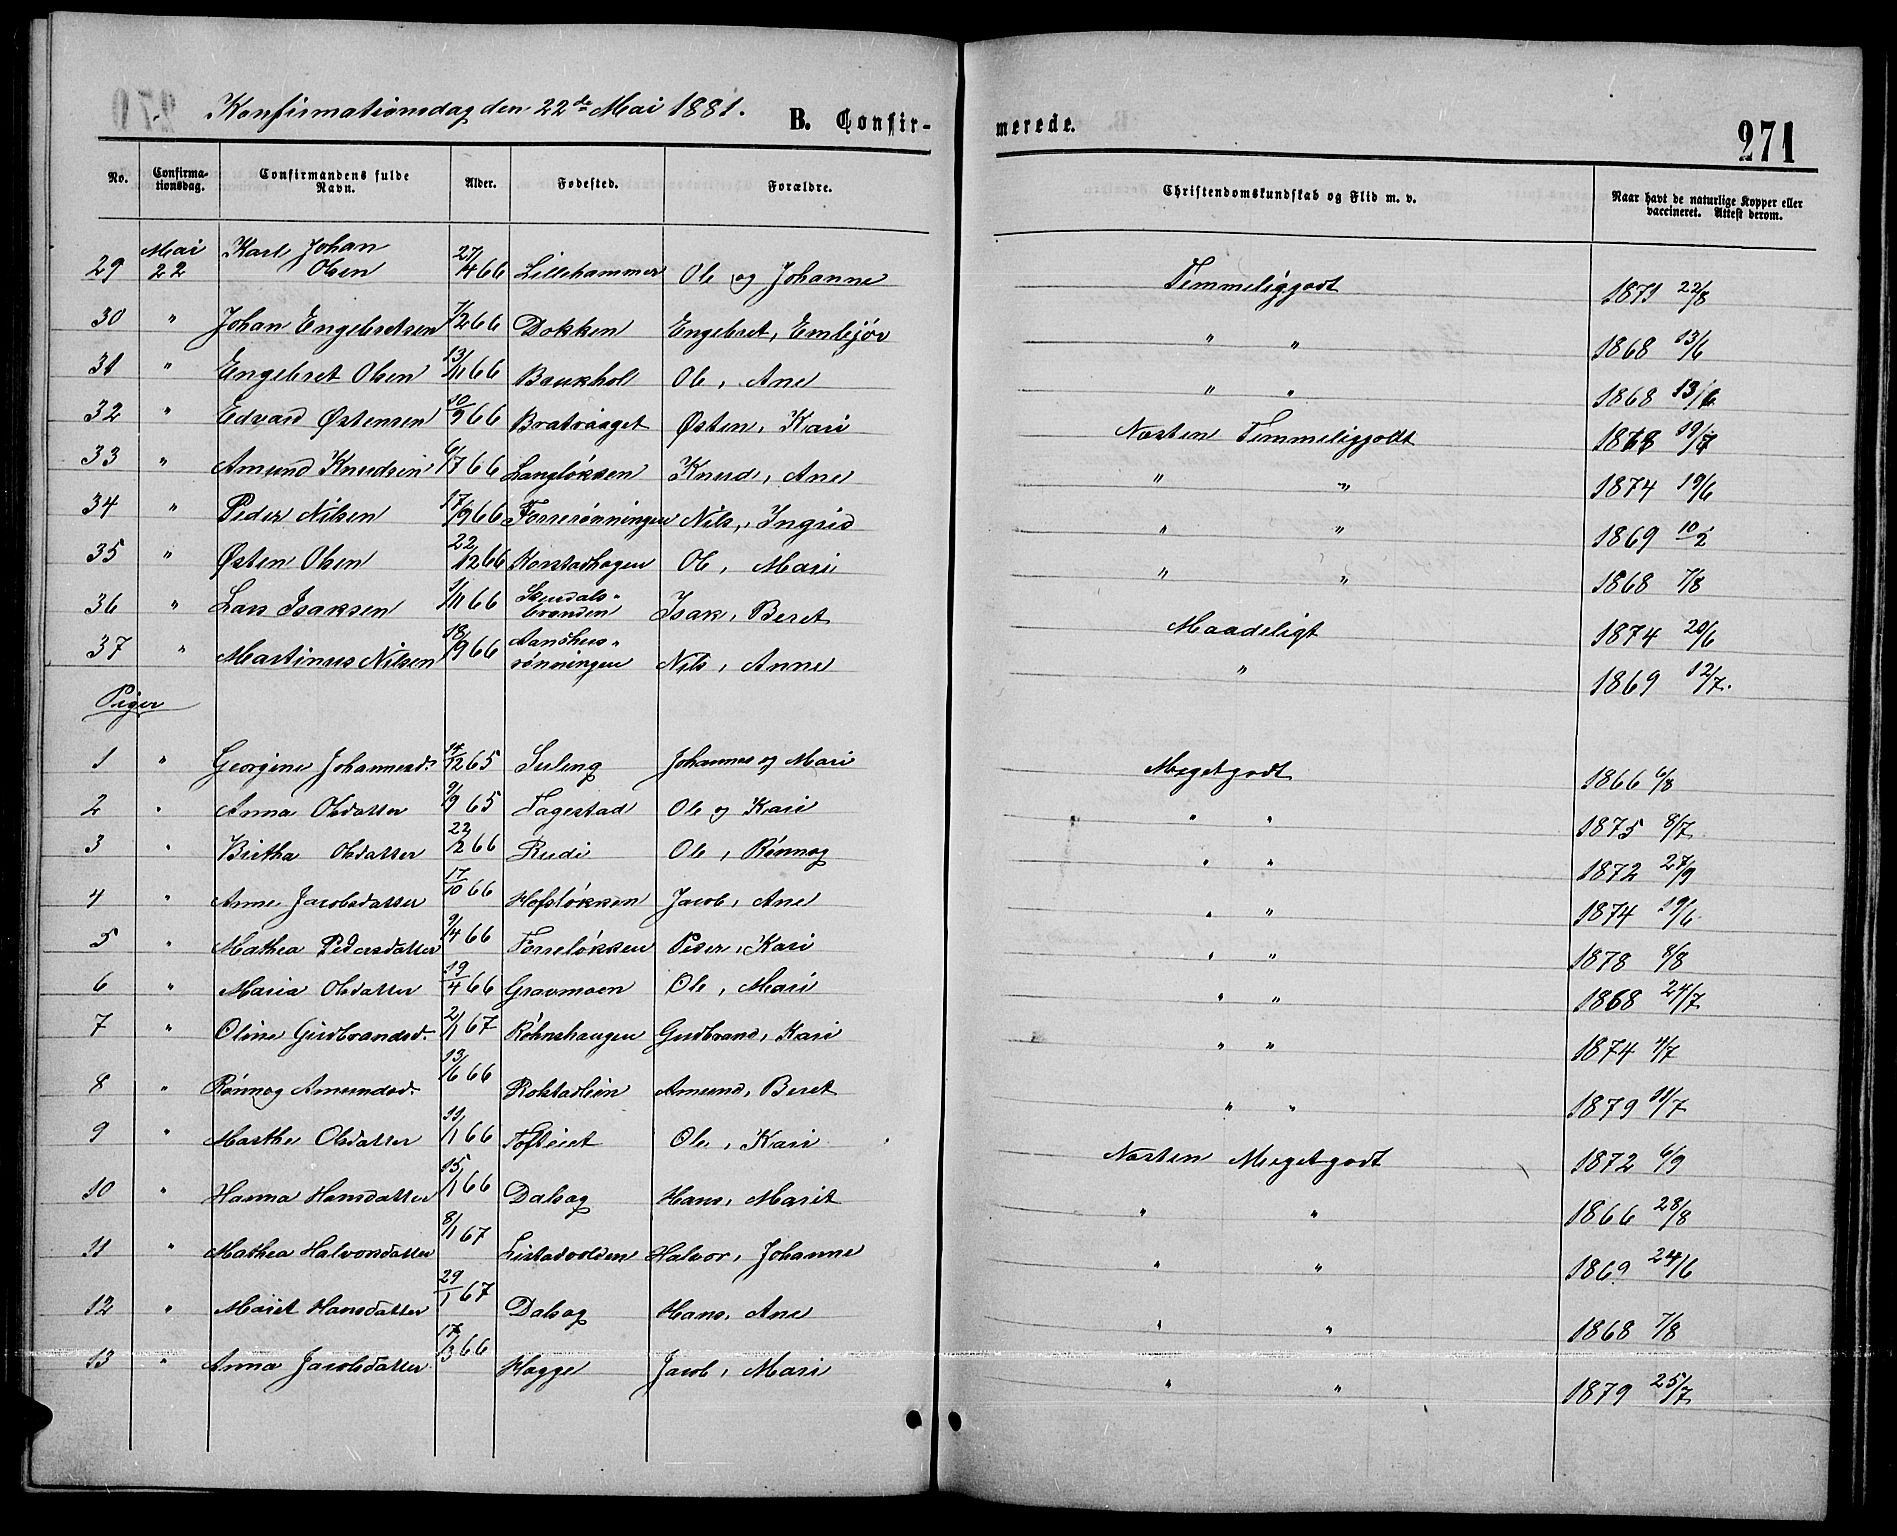 Konfirmationsdag den 22de Mai 1881.
B. Confirmerede.
271
No. Confirmationsdag. Confirmandens fulde Navn. Alder. Fødested. Forældre. Christendomskundskab og Flid m. v. Naar havt de naturlige Kopper eller vaccineret. Attest derom.
29 Mai 22 Karl Johan Olsen 27/4 66 Lillehammer Ole og Johanne Temmeliggodt 1871 22/8
30 " Johan Engebretsen 7/2 66 Dokken Engebret, Embjør " " 1868 13/6
31 " Engebret Olsen 13/11 66 Baukhol Ole, Ane " " 1868 13/6
32 " Edvard Østensen 10/9 66 Bratvaaget Østen, Kari Næsten Temmeliggodt 1878 19/7
33 " Amund Knudsen 6/7 66 Langløkken Knud, Ane " " 1874 19/6
34 " Peder Nilsen 17/9 66 Forrerønningen Nils, Ingrid " " 1869 10/2
35 " Østen Olsen 22/12 66 Korstadhagen Ole, Mari " " 1868 7/8
36 " Lars Isaksen 1/11 66 Isak, Beret Maadeligt 1874 20/6
37 " Martinus Nilsen 18/9 66 Aandhusrønningen Nils, Anne " 1869 12/7.
Piger
1 " Georgine Johannesd. 14/12 65 Suleng Johannes og Mari Megetgodt 1866 6/8
2 " Anna Olsdatter 9/9 65 Fagestad Ole og Kari " " 1875 8/7
3 " Birtha Olsdatter 22/2 66 Rudi Ole, Rønnog " " 1872 27/9
4 " Anne Jacobsdatter 17/10 66 Hofsløkken Jacob, Ane " " 1874 19/6
5 " Mathea Pedersdatter 9/4 66 Forreløkken Peder, Kari " " 1878 8/8
6 " Maria Olsdatter 19/4 66 Gravmoen Ole, Mari " " 1868 24/7
7 " Oline Gudbrandsd. 2/1 67 Røhnshaugen Gudbrand, Kari " " 1874 4/7
8 " Rønnog Amundsd. 13/6 66 Rolstadlien Amund, Beret " " 1879 11/7
9 " Marthe Olsdatter 11/1 66 Tofteiet Ole, Kari Næsten Megetgodt 1872 6/9
10 " Hanna Hansdatter 15/1 66 Dalsog Hans, Marit " " 1866 28/8
11 " Mathea Halvorsdatter 8/1 67 Listadvolden Halvor, Johanne " " 1869 24/6
12 " Marit Hansdatter 29/1 67 Dalsog Hans, Ane " " 1868 7/8
13 " Anna Jacobsdatter 17/3 66 Hagge Jacob, Mari " " 1879 25/7